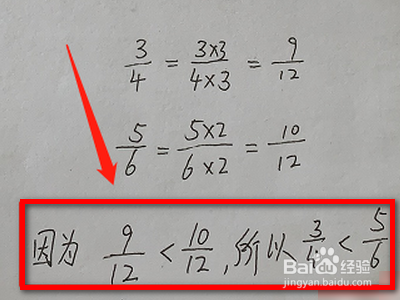 3/4 = 3×3/4×3 = 9/12
5/6 = 5×2/6×2 = 10/12
因为 9/12 < 10/12, 所以 3/4 < 5/6
Baidu经验
jingyan.baidu.com